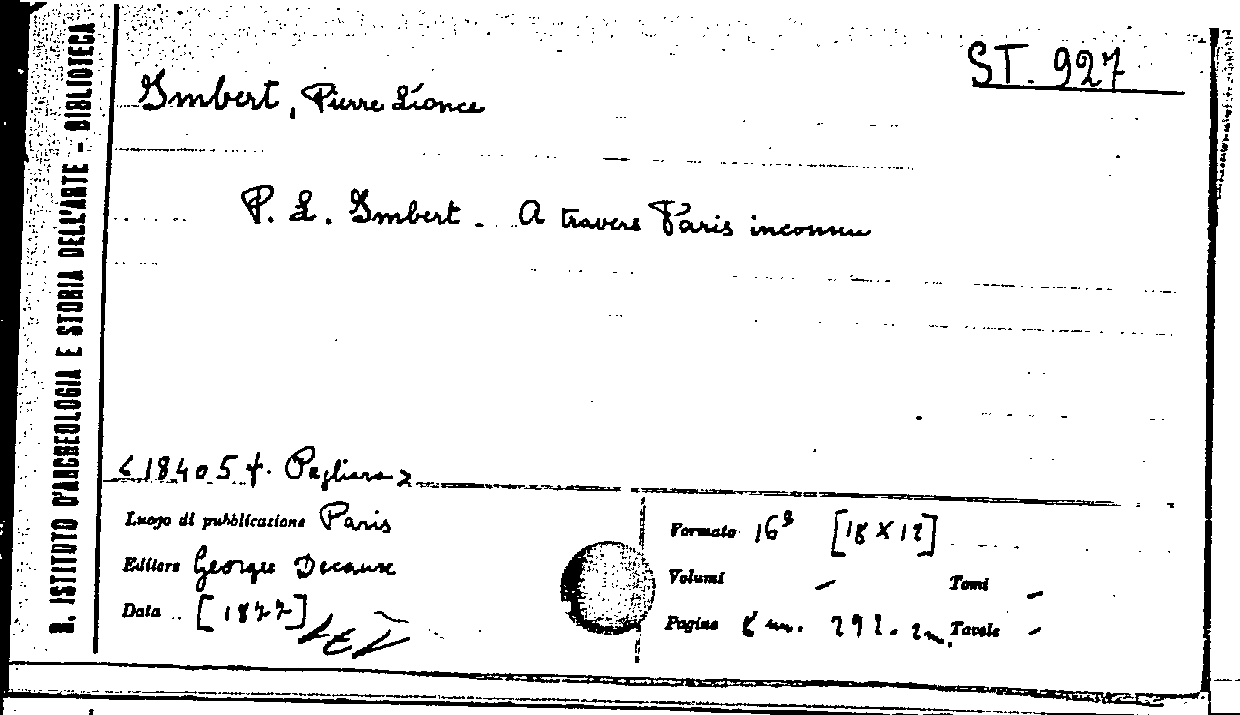 R. ISTITUTO D'ARCHEOLOGIA E STORIA DELL'ARTE - BIBLIOTECA
ST. 927
Imbert, Pierre Léonce
P. L. Imbert - A travers Paris inconnu
<184054. Pagliara>
Luogo di pubblicazione Paris
Editore Georges Decaux
Data [1877]
Formato 16° [18 X 12]
Volumi -
Tomi -
Pagine 292.
Tavole -